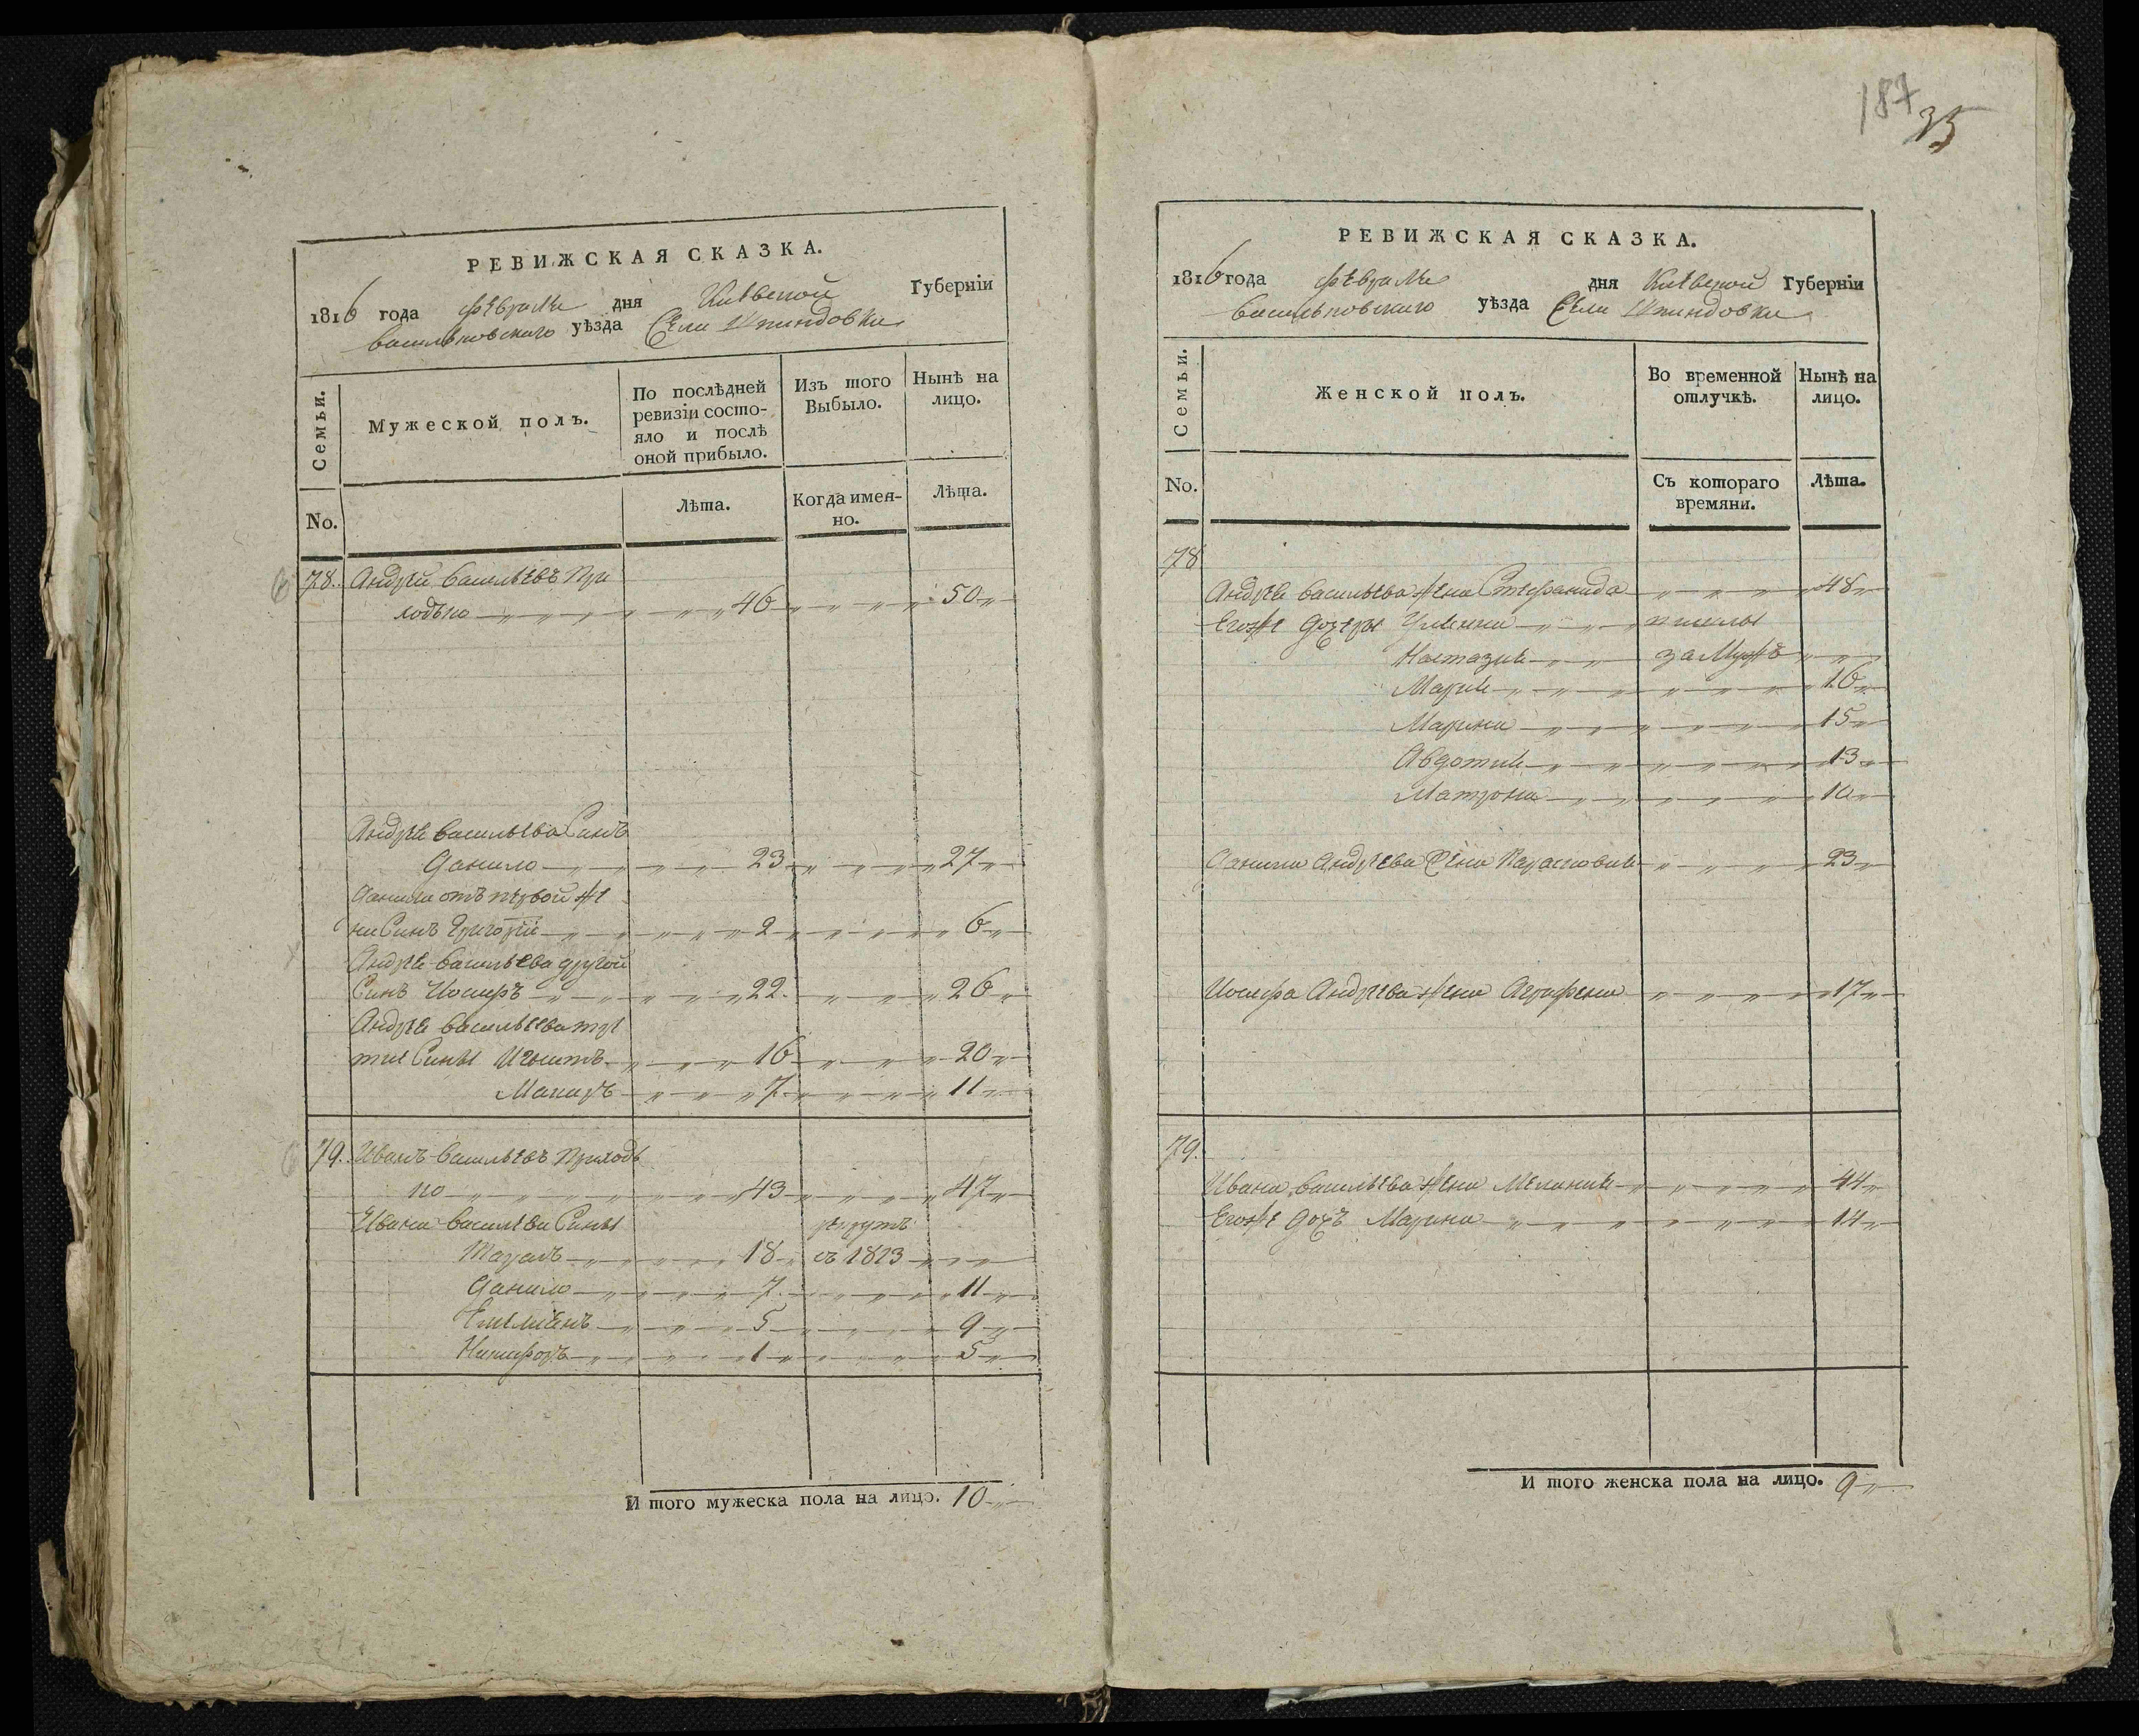 187
35
РЕВИЖСКАЯ СКАЗКА.
1816 года февраля дня Кіевской Губерніи
Васильковского уѣзда Села Шпиндовки
Семьи.
Мужеской полъ.
По послѣдней ревизіи состояло и послѣ оной прибыло.
Изъ того Выбыло.
Нынѣ на лицо.
No.
Лѣта.
Когда имен-
но.
Лѣта.
78. Андрей Васильевъ При
ходько 46 50
Андрея Васильева Синъ
Данило 23 27
Данила отъ первой же
ни Синъ Григорій 2 6
Андрея Васильева другой
Синъ Иосифъ 22 26
Андрея Васильева тре
тие Сини 16 20
Макаръ 7 11
79. Иванъ Васильевъ Приходь
ко 43 47
Ивана Васильева Сини рекрутъ
Тарасъ 18 въ 1813
Данило 7 11
Емелиенъ 5 9
Никифоръ 1 5
И того мужеска пола на лицо. 10
РЕВИЖСКАЯ СКАЗКА.
1816 года февраля дня Кіевской Губерніи
Васильковского уѣзда Села Шпиндовки
Семьи.
Женской полъ.
Во временной отлучкѣ.
Нынѣ на лицо.
No.
Съ котораго времяни.
Лѣта.
78
Андрея Васильева Жена Стефанида 48
Егоже дочери
Настазия замужѣ
Мария 16
Марина 15
Авдотия 13
Матрона 10
Данила Андреева Жена Парасковия 23
Иосифа Андреева Жена Агрифена 17
79.
Ивана Васильева Жена Мелания 44
Егоже дочъ Марина 14
И того женска пола на лицо. 9